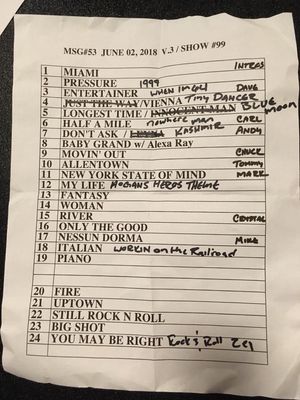 MSG#53 JUNE 02, 2018 V.3 / SHOW #99
INTROS
1 MIAMI
2 PRESSURE 1999
3 ENTERTAINER WHEN I'M 64 DAVE
4 JUST THE WAY/VIENNA TINY DANCER
5 LONGEST TIME / INNOCENT MAN BLUE MOON
6 HALF A MILE nowhere man CARL
7 DON'T ASK / LEYNA KASHMIR ANDY
8 BABY GRAND w/ Alexa Ray
9 MOVIN' OUT CHUCK
10 ALLENTOWN TOMMY
11 NEW YORK STATE OF MIND MARK
12 MY LIFE HOGANS HEROS THEME
13 FANTASY
14 WOMAN
15 RIVER CRYSTAL
16 ONLY THE GOOD
17 NESSUN DORMA MIKE
18 ITALIAN WORKIN on the Railroad
19 PIANO
20 FIRE
21 UPTOWN
22 STILL ROCK N ROLL
23 BIG SHOT
24 YOU MAY BE RIGHT Rock & Roll Zep